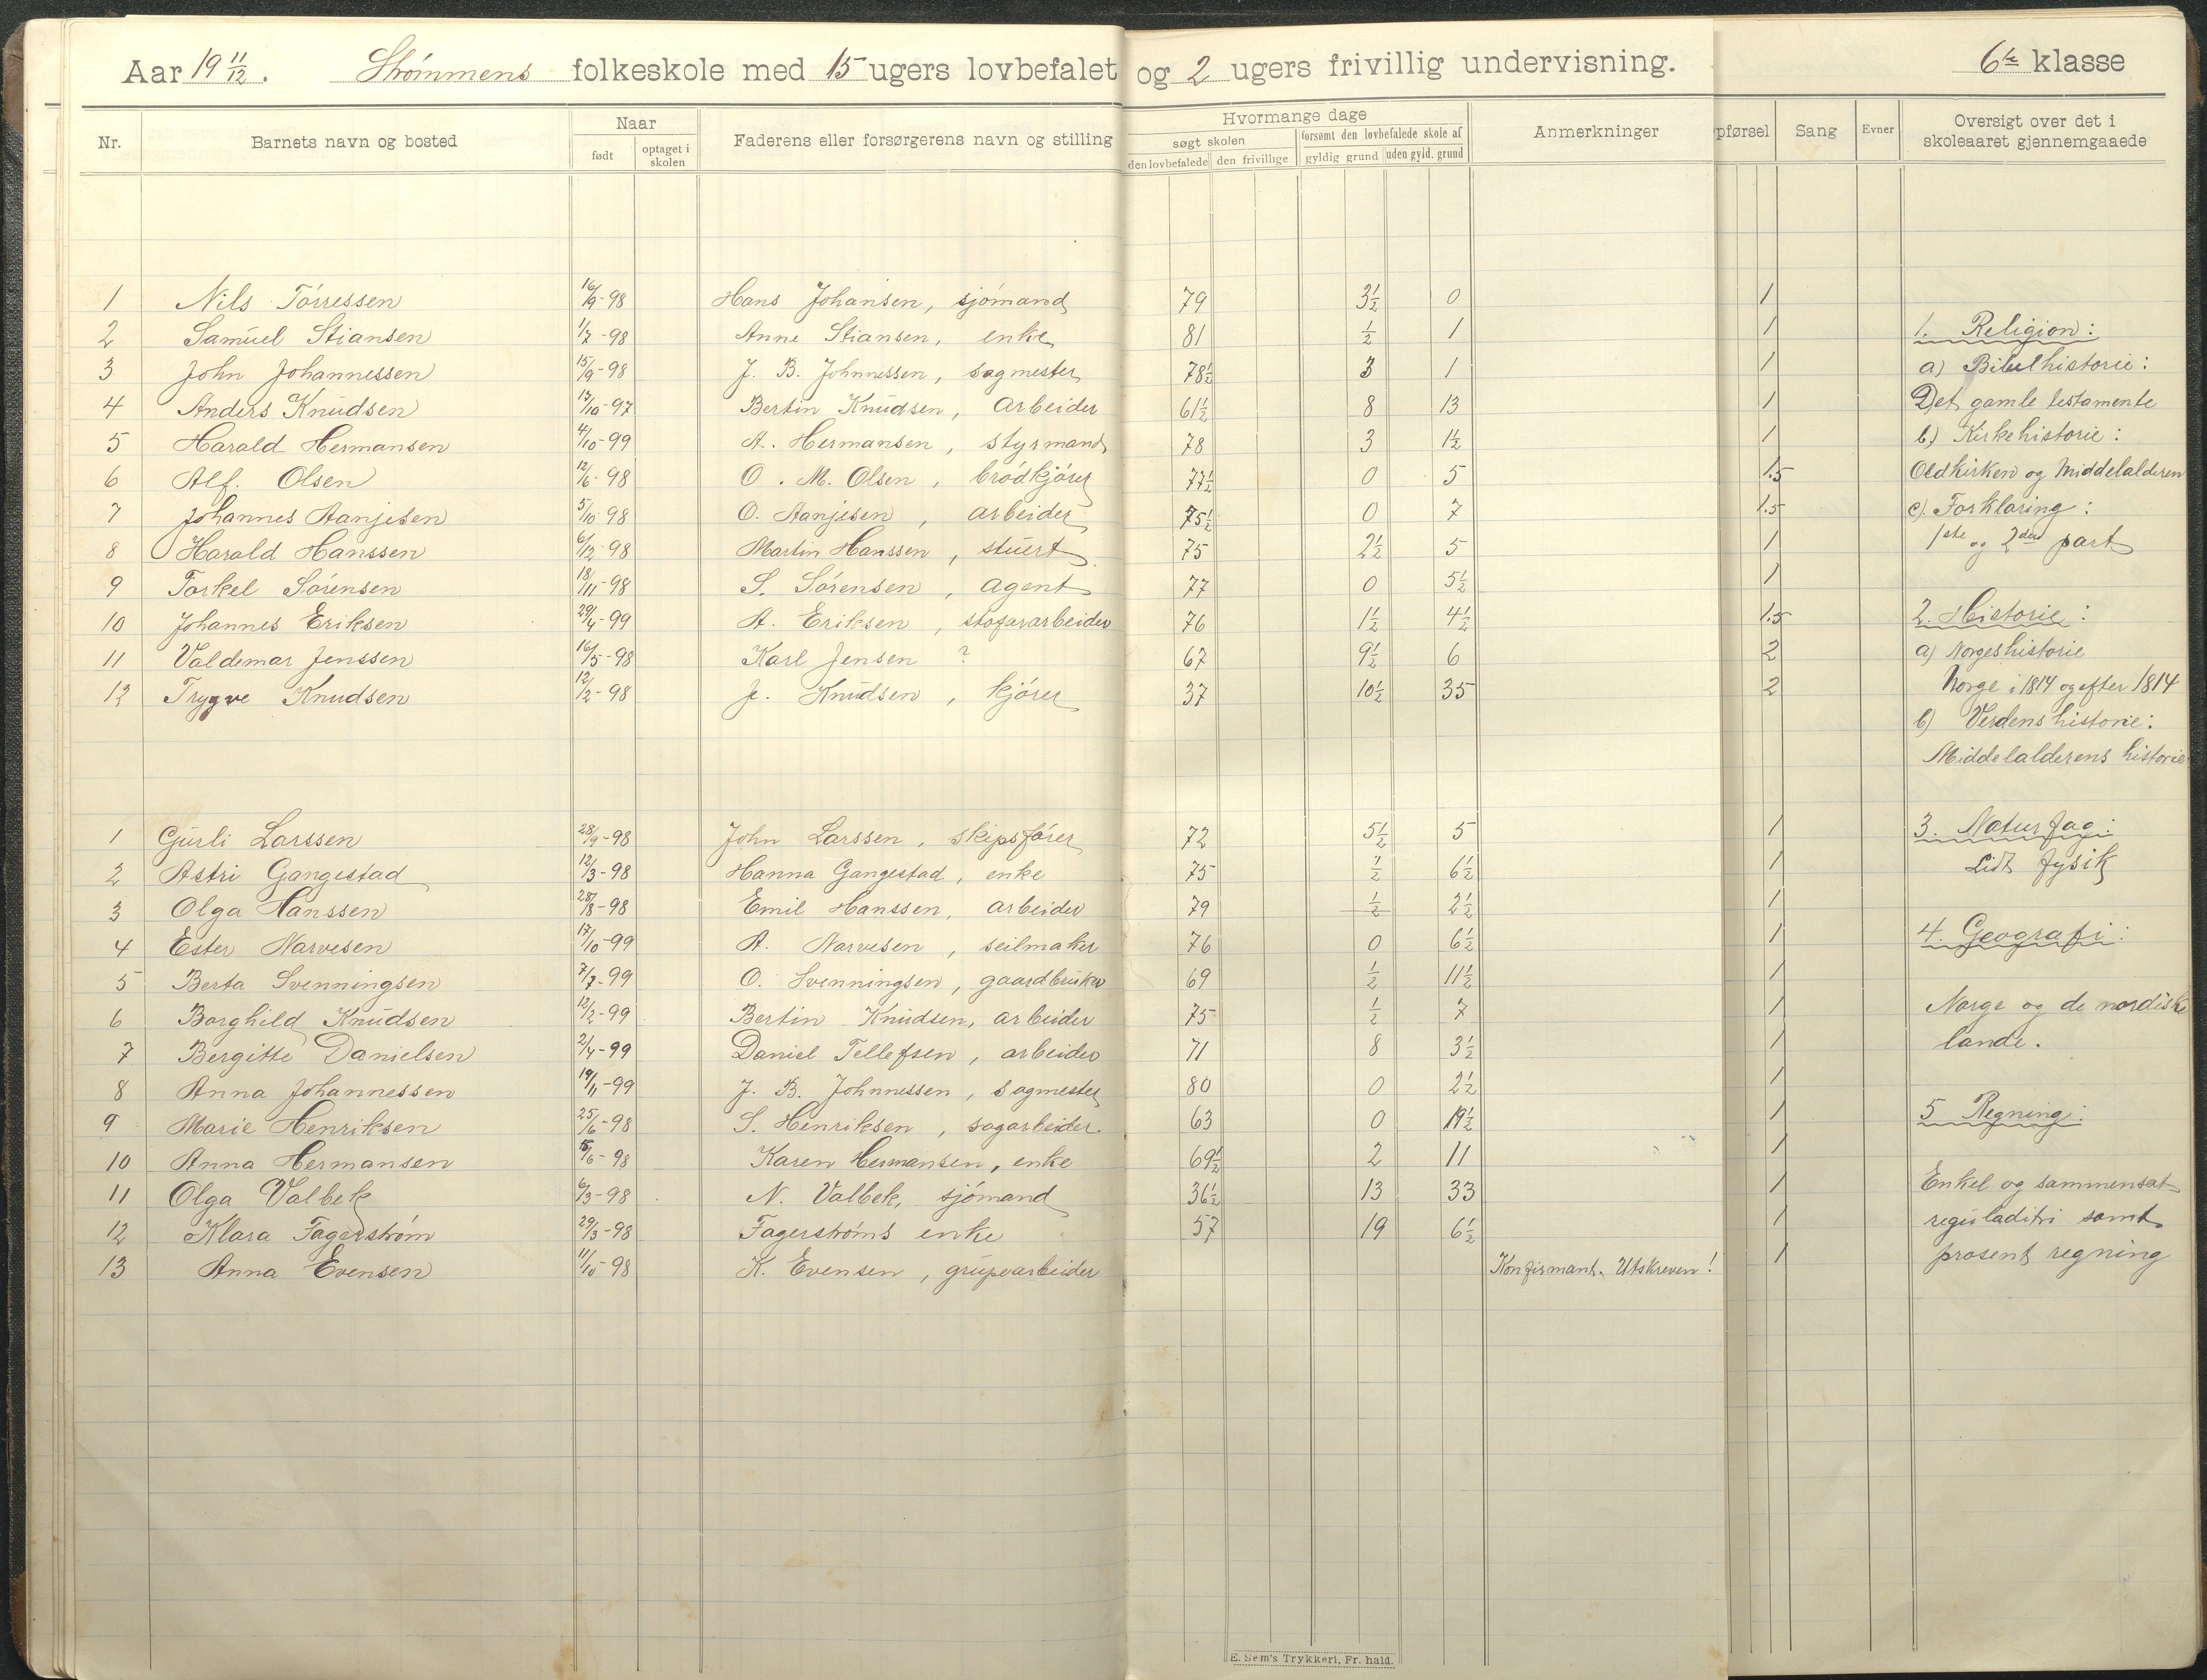 Aar 19 11/12. Strömmens folkeskole med 15 ugers lovbefalet og 2 ugers frivillig undervisning. 6te klasse
Nr. Barnets navn og bosted Naar født optaget i skolen Faderens eller forsørgerens navn og stilling Hvormange dage søgt skolen den lovbefalede den frivillige forsømt den lovbefalede skole af gyldig grund uden gyld. grund Anmerkninger pførsel Sang Evner Oversigt over det i skoleaaret gjennemgaaede
1 Nils Törressen 16/9-98 Hans Johansen, sjömand 79 3½ 0 1
2 Samuel Stiansen 1/7-98 Anne Stiansen, enke 81 ½ 1 1 1. Religion:
3 John Johannessen 15/9-98 J. B. Johnnessen, sagmester 78½ 3 1 1 a) Bibelhistorie:
4 Anders Knudsen 13/10-97 Bertin Knudsen, arbeider 61½ 8 13 1 Det gamle testamente
5 Harald Hermansen 4/10-99 A. Hermansen, styrmand 78 3 1½ 1 b) Kirkehistorie:
6 Alf. Olsen 12/6-98 O. M. Olsen, brödkjörer 77½ 0 5 1.5 Oldkirken og Middelalderen
7 Johannes Aanjesen 5/10-98 O. Aanjesen, arbeider 75½ 0 7 1.5 c) Forklaring:
8 Harald Hanssen 6/12-98 Martin Hanssen, stuert 75 2½ 5 1 1ste og 2den part
9 Torkel Sörensen 18/11-98 S. Sörensen, agent 77 0 5½ 1
10 Johannes Eriksen 29/4-99 A. Eriksen, stofararbeider 76 1½ 4½ 1.5 2. Historie:
11 Valdemar Jenssen 16/5-98 Karl Jensen ? 67 9½ 6 2 a) Norgeshistorie
12 Trygve Knudsen 12/2-98 J. Knudsen, kjörer 37 10½ 35 2 Norge i 1814 og efter 1814
b) Verdenshistorie:
Middelalderens historie
1 Gurli Larssen 28/9-98 John Larssen, skipsförer 72 5½ 5 1 3. Naturfag:
2 Astri Gangestad 12/3-98 Hanna Gangestad, enke 75 ½ 6½ 1 Lidt fysik
3 Olga Hanssen 28/8-98 Emil Hanssen, arbeider 79 ½ 2½ 1
4 Ester Narvesen 17/10-99 A. Narvesen, seilmaker 76 0 6½ 1 4. Geografi:
5 Berta Svenningsen 7/7-99 O. Svenningsen, gaardbruker 69 ½ 11½ 1
6 Borghild Knudsen 12/2-99 Bertin Knudsen, arbeider 75 ½ 7 1 Norge og de nordiske
7 Bergitte Danielsen 2/4-99 Daniel Tellefsen, arbeider 71 8 3½ 1 lande.
8 Anna Johannessen 19/11-99 J. B. Johnnessen, sagmester 80 0 2½ 1
9 Marie Henriksen 25/6-98 S. Henriksen, sagarbeider. 63 0 19½ 1 5 Regning:
10 Anna Hermansen 5/6-98 Karen Hermansen, enke 69½ 2 11 1
11 Olga Valbek 6/3-98 N. Valbek, sjömand 36½ 13 33 1 Enkel og sammensat
12 Klara Fagerström 29/3-98 Fagerströms enke 57 19 6½ 1 reguladitri samt
13 Anna Evensen 11/10-98 K. Evensen, grupearbeider Konfirmant. Utskreven! 1 prosent regning
E. Sem's Trykkeri, Fr. hald.